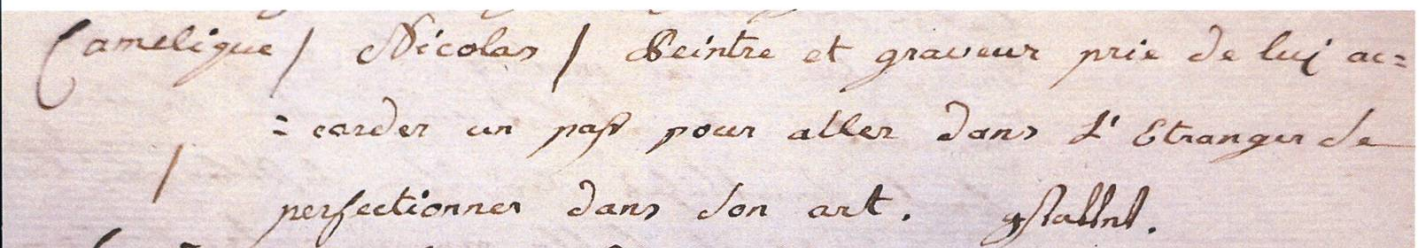 Camelique / Nicolas / Peintre et graveur prie de luj ac=
=corder un pass pour aller dans L'Etranger se
perfectionner dans son art.